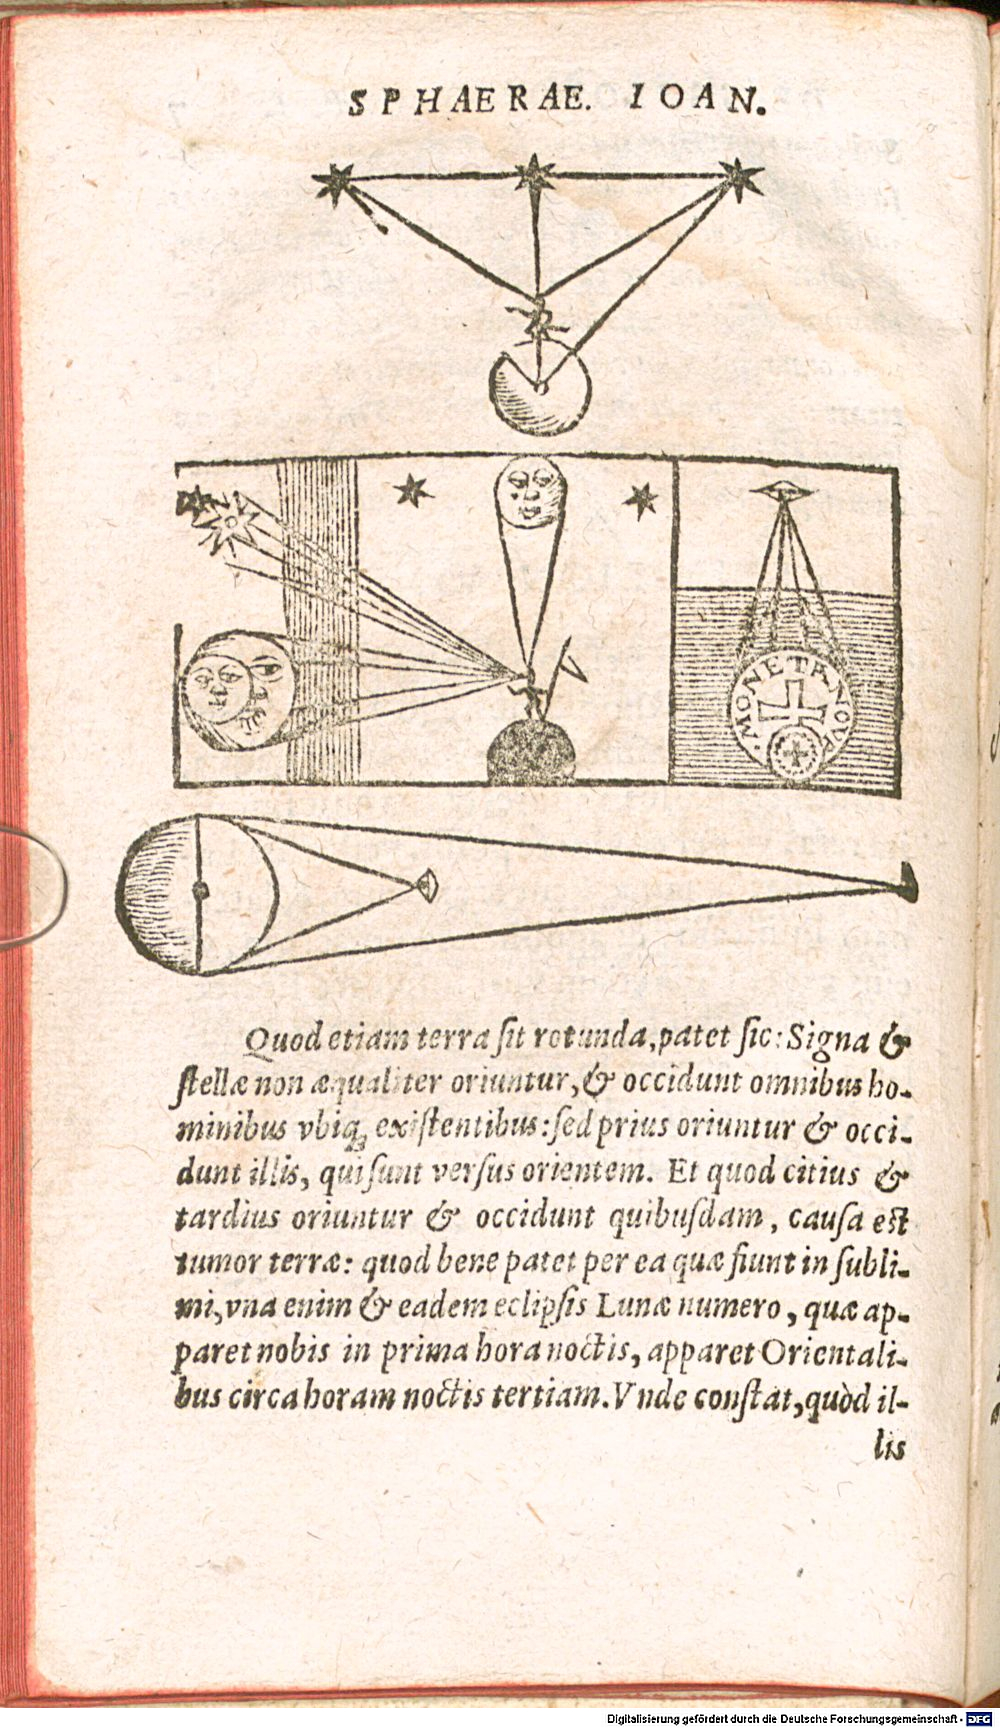 SPHAERAE. IOAN.
MONETA NOVA
Quod etiam terra ſit rotunda, patet ſic: Signa &
ſtellæ non æqualiter oriuntur, & occidunt omnibus ho-
minibus vbiq; exiſtentibus: ſed prius oriuntur & occi-
dunt illis, qui ſunt verſus orientem. Et quod citius &
tardius oriuntur & occidunt quibuſdam, cauſa eſt
tumor terræ: quod bene patet per ea quæ fiunt in ſubli-
mi, vna enim & eadem eclipſis Lunæ numero, quæ ap-
paret nobis in prima hora noctis, apparet Orientali-
bus circa horam noctis tertiam. Vnde conſtat, quòd il-
lis
Digitalisierung gefördert durch die Deutsche Forschungsgemeinschaft - DFG